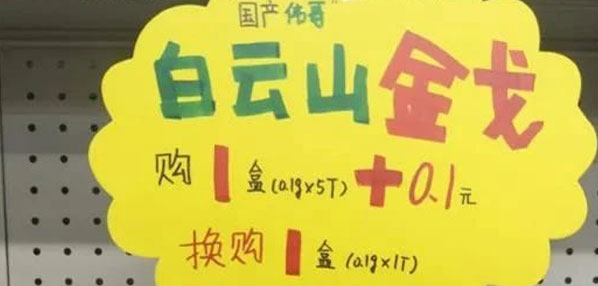 国产伟哥"
白云山金戈
购1盒(0.1g×5T)+0.1元
换购1盒(0.1g×1T)